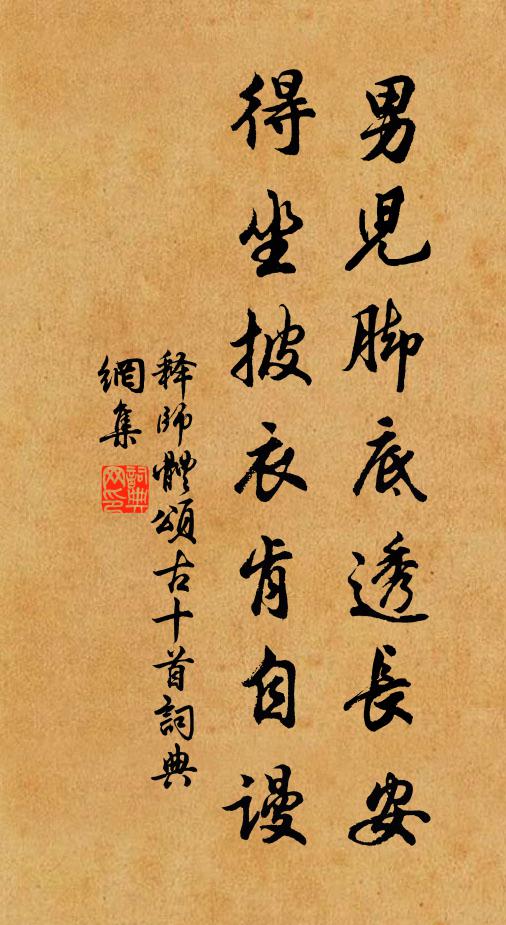 男兒脚底透長安
得坐披衣肯自謾
释師體頌古十首詞典
網集
詞典網印